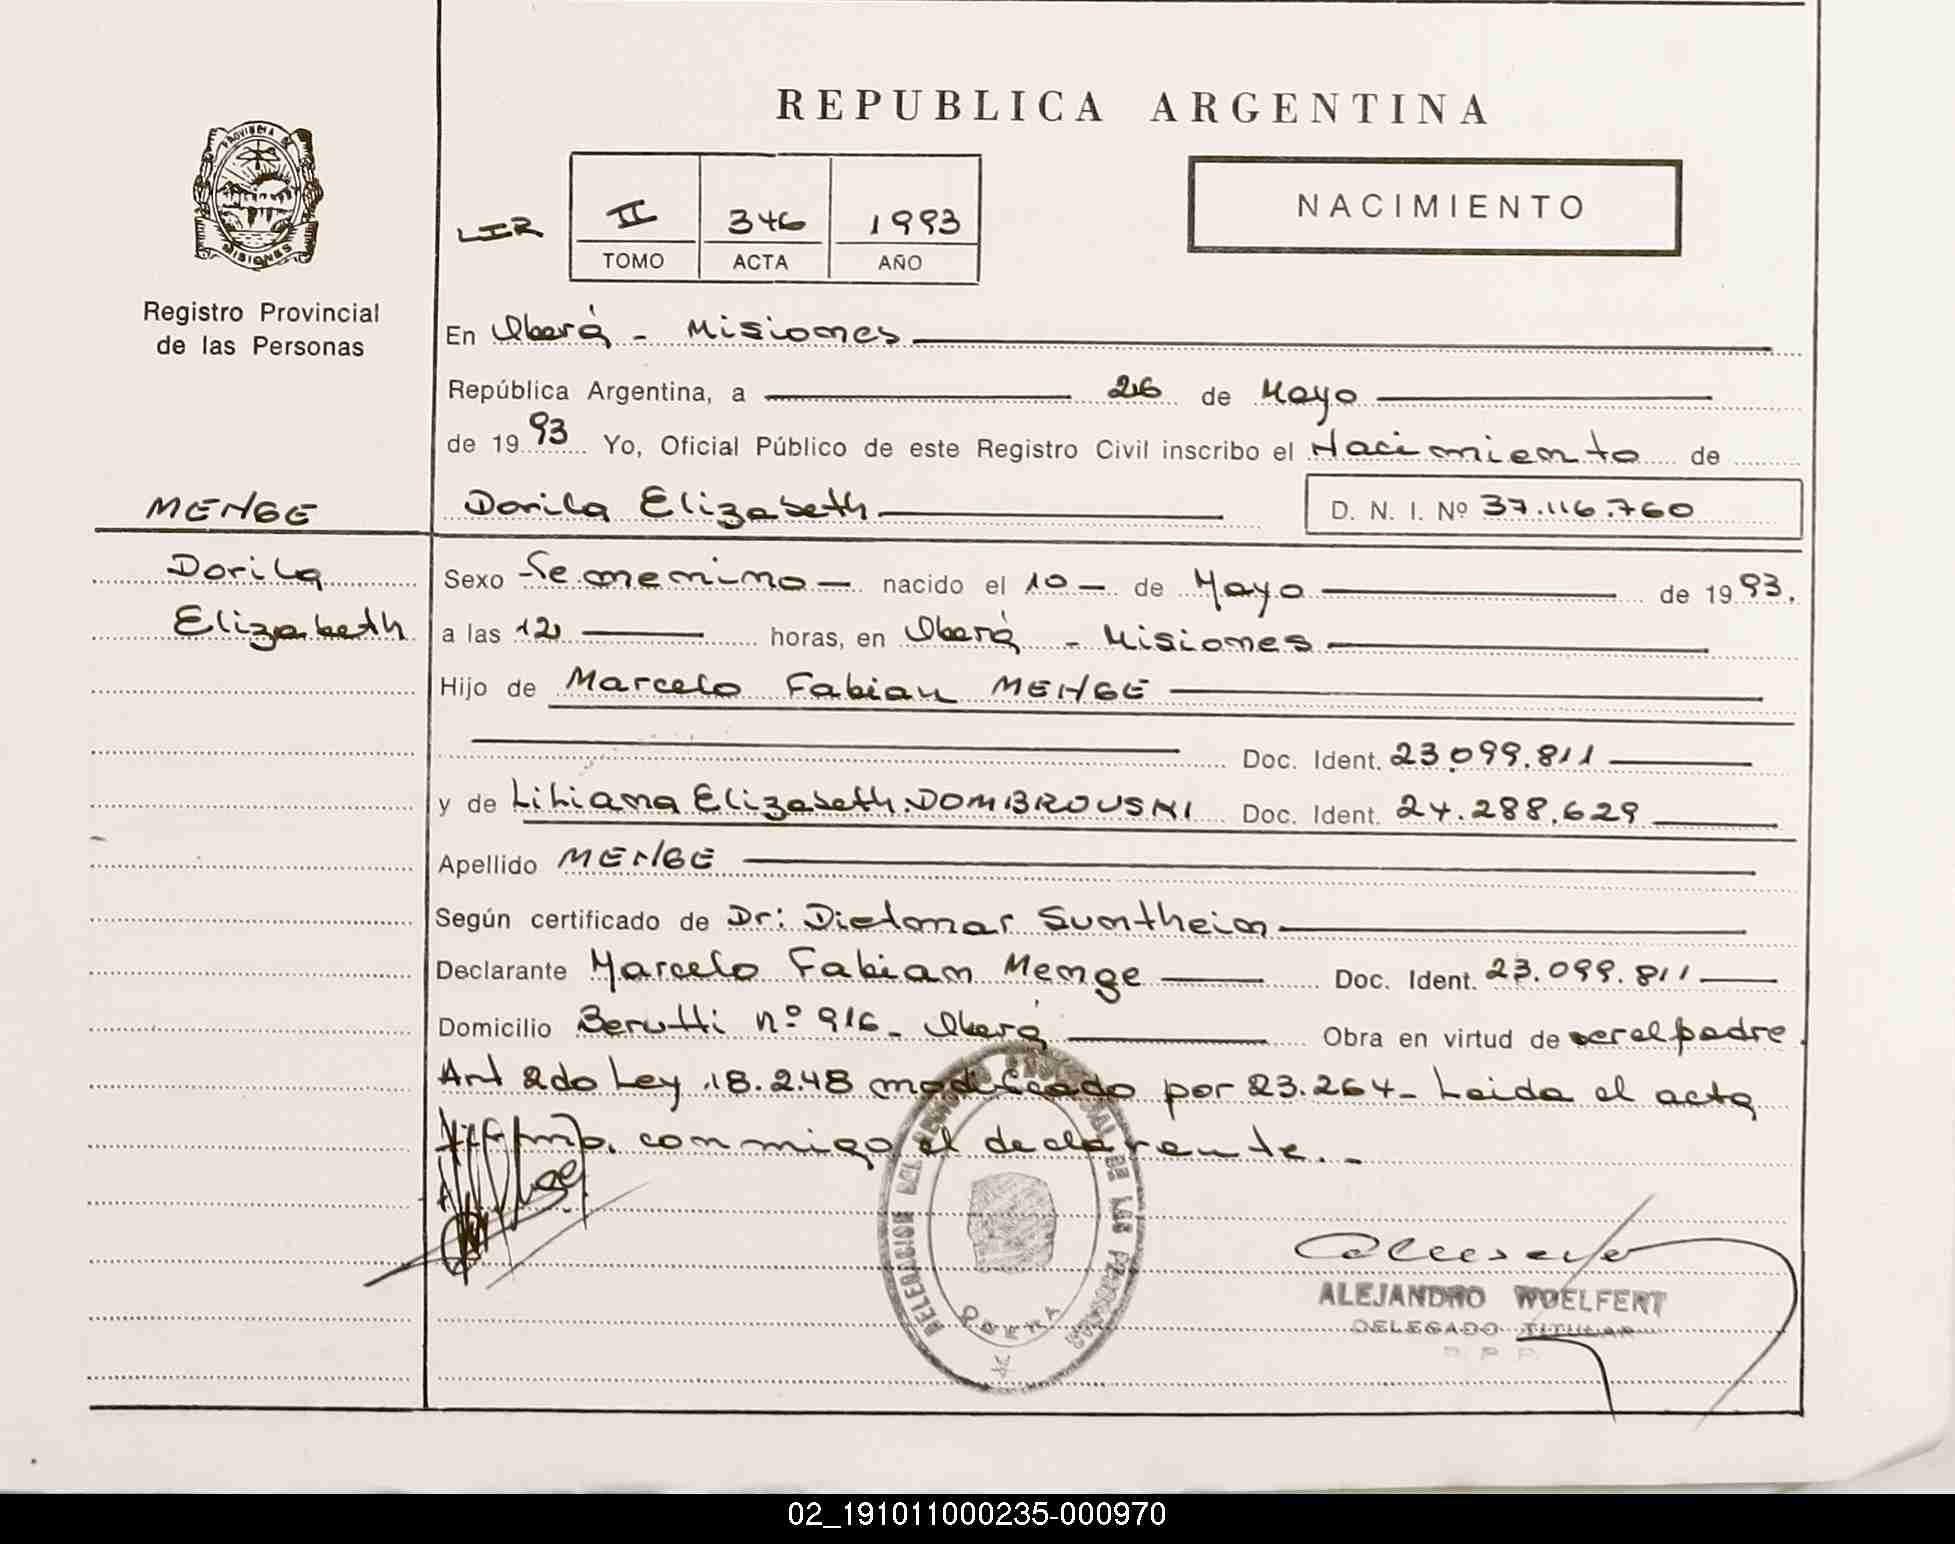 REPUBLICA ARGENTINA
PROVINCIA DE
MISIONES
Registro Provincial
de las Personas
LIR
II 346 1993
TOMO ACTA AÑO
NACIMIENTO
En Oberá - Misiones
República Argentina, a 26 de Mayo
de 1993 Yo, Oficial Público de este Registro Civil inscribo el Nacimiento de
MENGE
Dorila Elizabeth D. N. I. Nº 37.116.760
Dorila
Elizabeth
Sexo Femenino nacido el 10 de Mayo de 1993.
a las 12 horas, en Oberá - Misiones
Hijo de Marcelo Fabian MENGE
Doc. Ident. 23.099.811
y de Liliana Elizabeth DOMBROUSKI Doc. Ident. 24.288.629
Apellido MENGE
Según certificado de Dr: Dietmar Suntheim
Declarante Marcelo Fabian Menge Doc. Ident. 23.099.811
Domicilio Berutti nº 916 - Oberá Obra en virtud de ser el padre.
Art 2do Ley 18.248 modificado por 23.264 - Leida el acta
conmigo el declarente. -
DELEGACION DEL REGISTRO PROVINCIAL DE LAS PERSONAS
OBERA
ALEJANDRO WOELFERT
DELEGADO TITULAR
R. P. P.
02_191011000235-000970